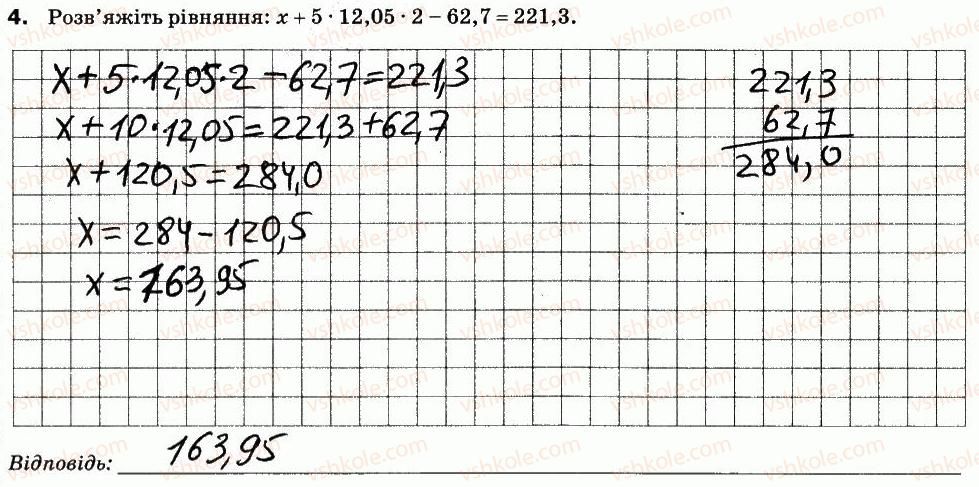 4. Розв'яжіть рівняння: x + 5 · 12,05 · 2 – 62,7 = 221,3.
x + 5·12,05·2 – 62,7 = 221,3
x + 10·12,05 = 221,3 + 62,7
x + 120,5 = 284,0
x = 284 – 120,5
x = 163,95
221,3
62,7
284,0
Відповідь: 163,95